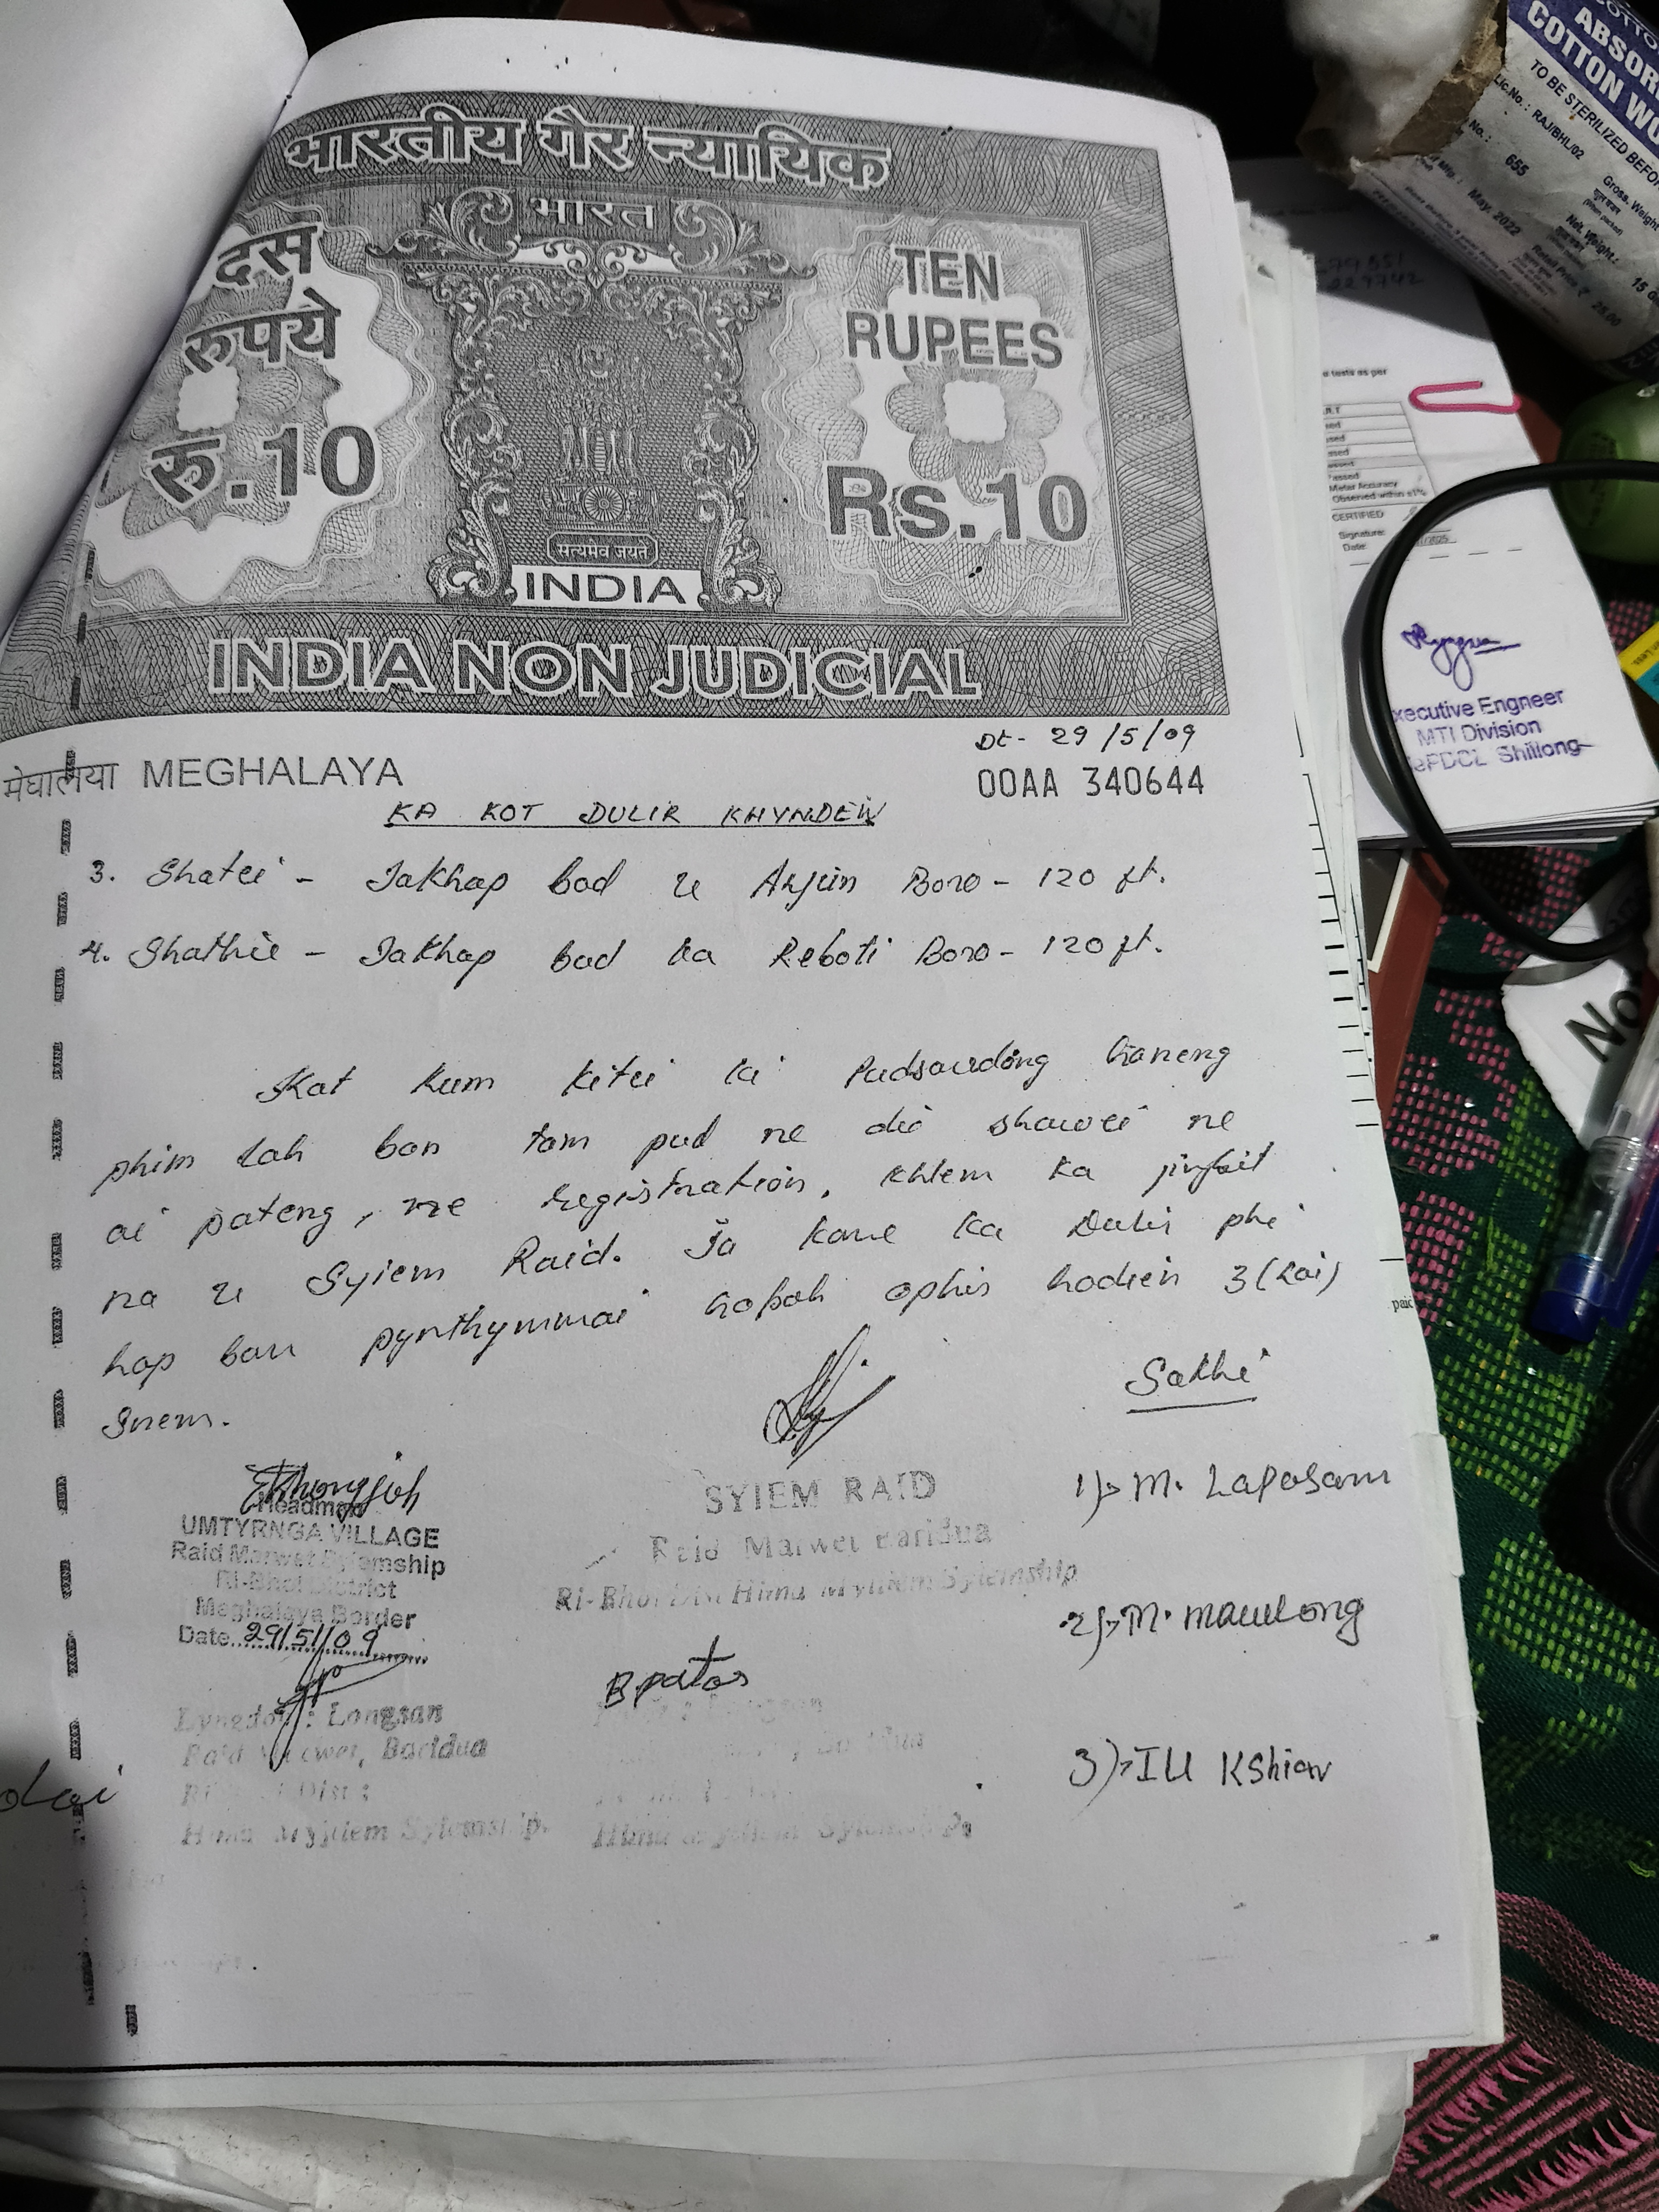 भारतीय गैर न्यायिक
भारत
दस
रुपये
रु.10
TEN
RUPEES
Rs.10
सत्यमेव जयते
INDIA
INDIA NON JUDICIAL
Dt- 29/5/09
मेघालया MEGHALAYA
00AA 340644
KA KOT DULIR KHYNDEW
3. Shatei - Jakhap bad u Arjun Boro - 120 ft.
4. Shathie - Jakhap bad ka Reboti Boro - 120 ft.
Kat kum kitei ki Pudsawdong haneng
phim lah ban tam pud ne die shawei ne
ai pateng, ne registration, khlem ka jingbit
na u Syiem Raid. Ia kane ka Dulir phi
hap ban pynthymmai hapoh ophis hadien 3 (Lai)
Snem.
Sakhi
EKhongjoh
Headman
UMTYRNGA VILLAGE
Raid Marwet Syiemship
Ri-Bhoi District
Meghalaya Border
Date..29/5/09
SYIEM RAID
Raid Marwet Baridua
Ri-Bhoi Dist Hima Mylliem Syiemship
1) M. Laposam
2) M. Mawlong
3) IU KShiar
B patos
Lyngdoh : Longsan
Raid Marwet, Baridua
Dist :
Hima Mylliem Syiemship.
Hima Mylliem Syiemship.
dai
ABSOR
COTTON WO
TO BE STERILIZED BEFO
Lic.No.: RAJ/BHL/02
No.: 655
Mfg.: May. 2022
Gross. Weight
Net. Weight:
Retail Price ₹ 25.00
15
tests as per
Meter Accuracy
Observed within ±1%
CERTIFIED
Signature:
Date:
xecutive Engneer
MTI Division
ePDCL Shillong
No
paid